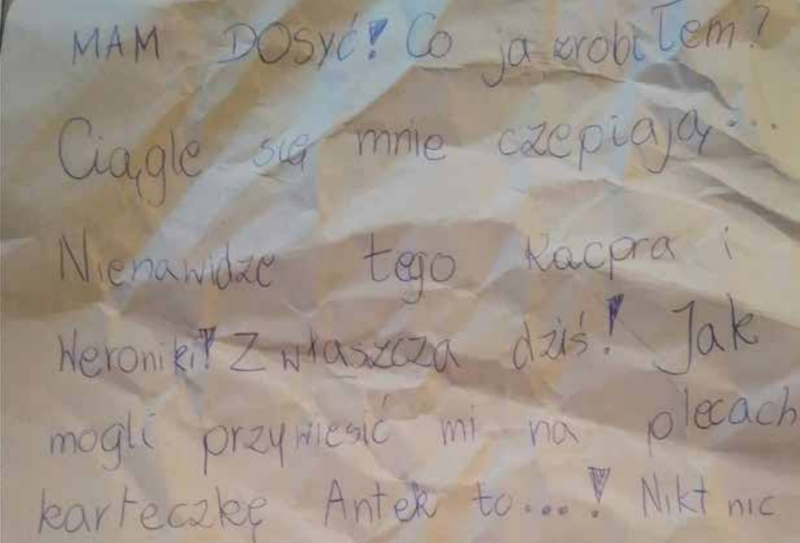 MAM DOSYĆ! Co ja zrobiłem?
Ciągle się mnie czepiają...
Nienawidzę tego Kacpra i
Weroniki! Zwłaszcza dziś! Jak
mogli przywiesić mi na plecach
karteczkę Antek to...! Nikt nic